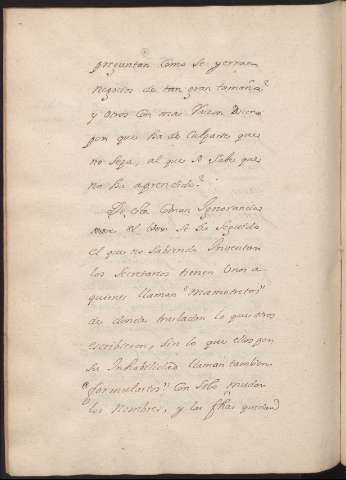 preguntan como se yerran
negocios de tan gran tamaño?
y otros con mas razon dicen
por que ha de culparse que
no sepa, al que se sabe que
no ha aprendido?
De esta comun Ignorancia
se ha seguido
el que no sabiendo Inventar
los Secretarios tienen Unos a
quienes llaman "Mamotretos"
de donde trasladan lo que otros
escribieron, sin lo que ellos por
su Inhabilidad llaman tambien
"formularios" Con solo mudar
los Nombres, y las fhas quedand